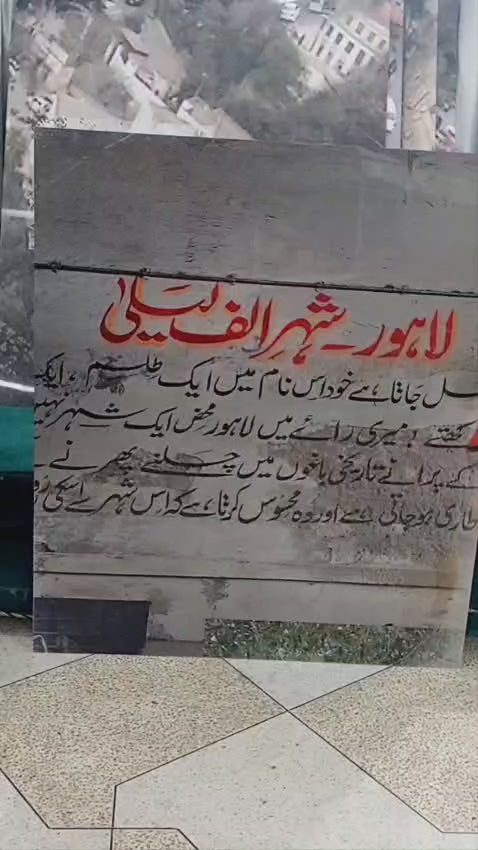 لاہور۔ شہرِ الف لیلیٰ
جاتا ہے خود اس نام میں ایک طلسم، ایک
کہتے میری رائے میں لاہور محض ایک شہر نہیں
کے پرانے تاریخی باغوں میں چلنے پھرنے سے
طاری ہو جاتی ہے اور وہ محسوس کرتا ہے کہ اس شہر سے اسکی